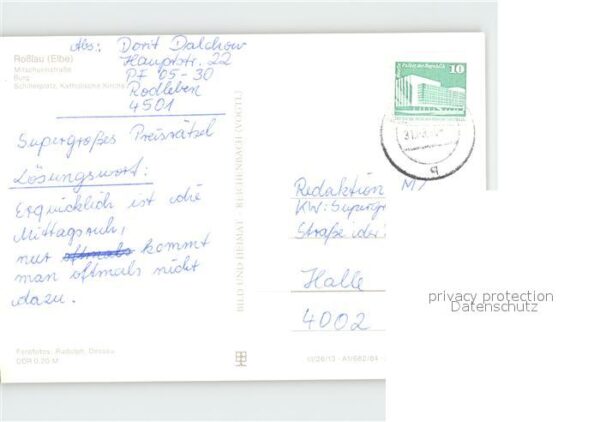 Roßlau (Elbe)
Mitschurinstraße
Burg
Schillerplatz, Katholische Kirche
Abs: Dorit Dalchow
Hauptstr. 22
PF 05-30
Rodleben
4501
Supergroßes Preisrätsel
Lösungswort:
Erquicklich ist die
Mittagsruh,
nur oftmals kommt
man oftmals nicht
dazu.
Farbfotos: Rudolph, Dessau
DDR 0,20 M
BILD UND HEIMAT · REICHENBACH (VOGTL)
III/26/13 · A1/682/84
Palast der Republik
10
Redaktion M
KW: Super
Straße der
Halle
4002
privacy protection
Datenschutz